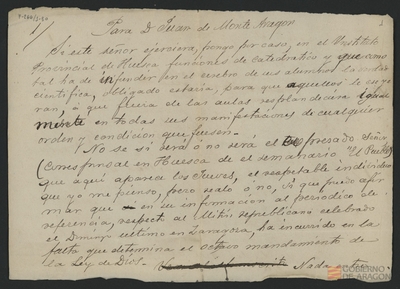 Para D. Juan de Monte Aragon
Si este señor ejerciera, pongo por caso, en el Instituto
Provincial de Huesca funciones de Catedrático y que
bal ha de infundir en el cerebro de sus alumnos la
científica, obligado estaría, para que aquellos le
ran, á que fuera de las aulas resplandeciera igual
mente en todas sus manifestaciones de cualquier
orden y condición que fuesen.
No se si será ó no será el expresado Señor
(Corresponsal en Huesca de el semanario "El Pueblo"
que aquí aparece los Jueves, el respetable individuo
que yo me pienso, pero sealo ó no, si que puedo afir
mar que en su información al periódico de
referencia, respecto al Mitin republicano celebrado
el Domingo ultimo en Zaragoza, ha incurrido en la
falta que determina el octavo mandamiento de
la Ley de Dios. Nada
GOBIERNO
DE ARAGON